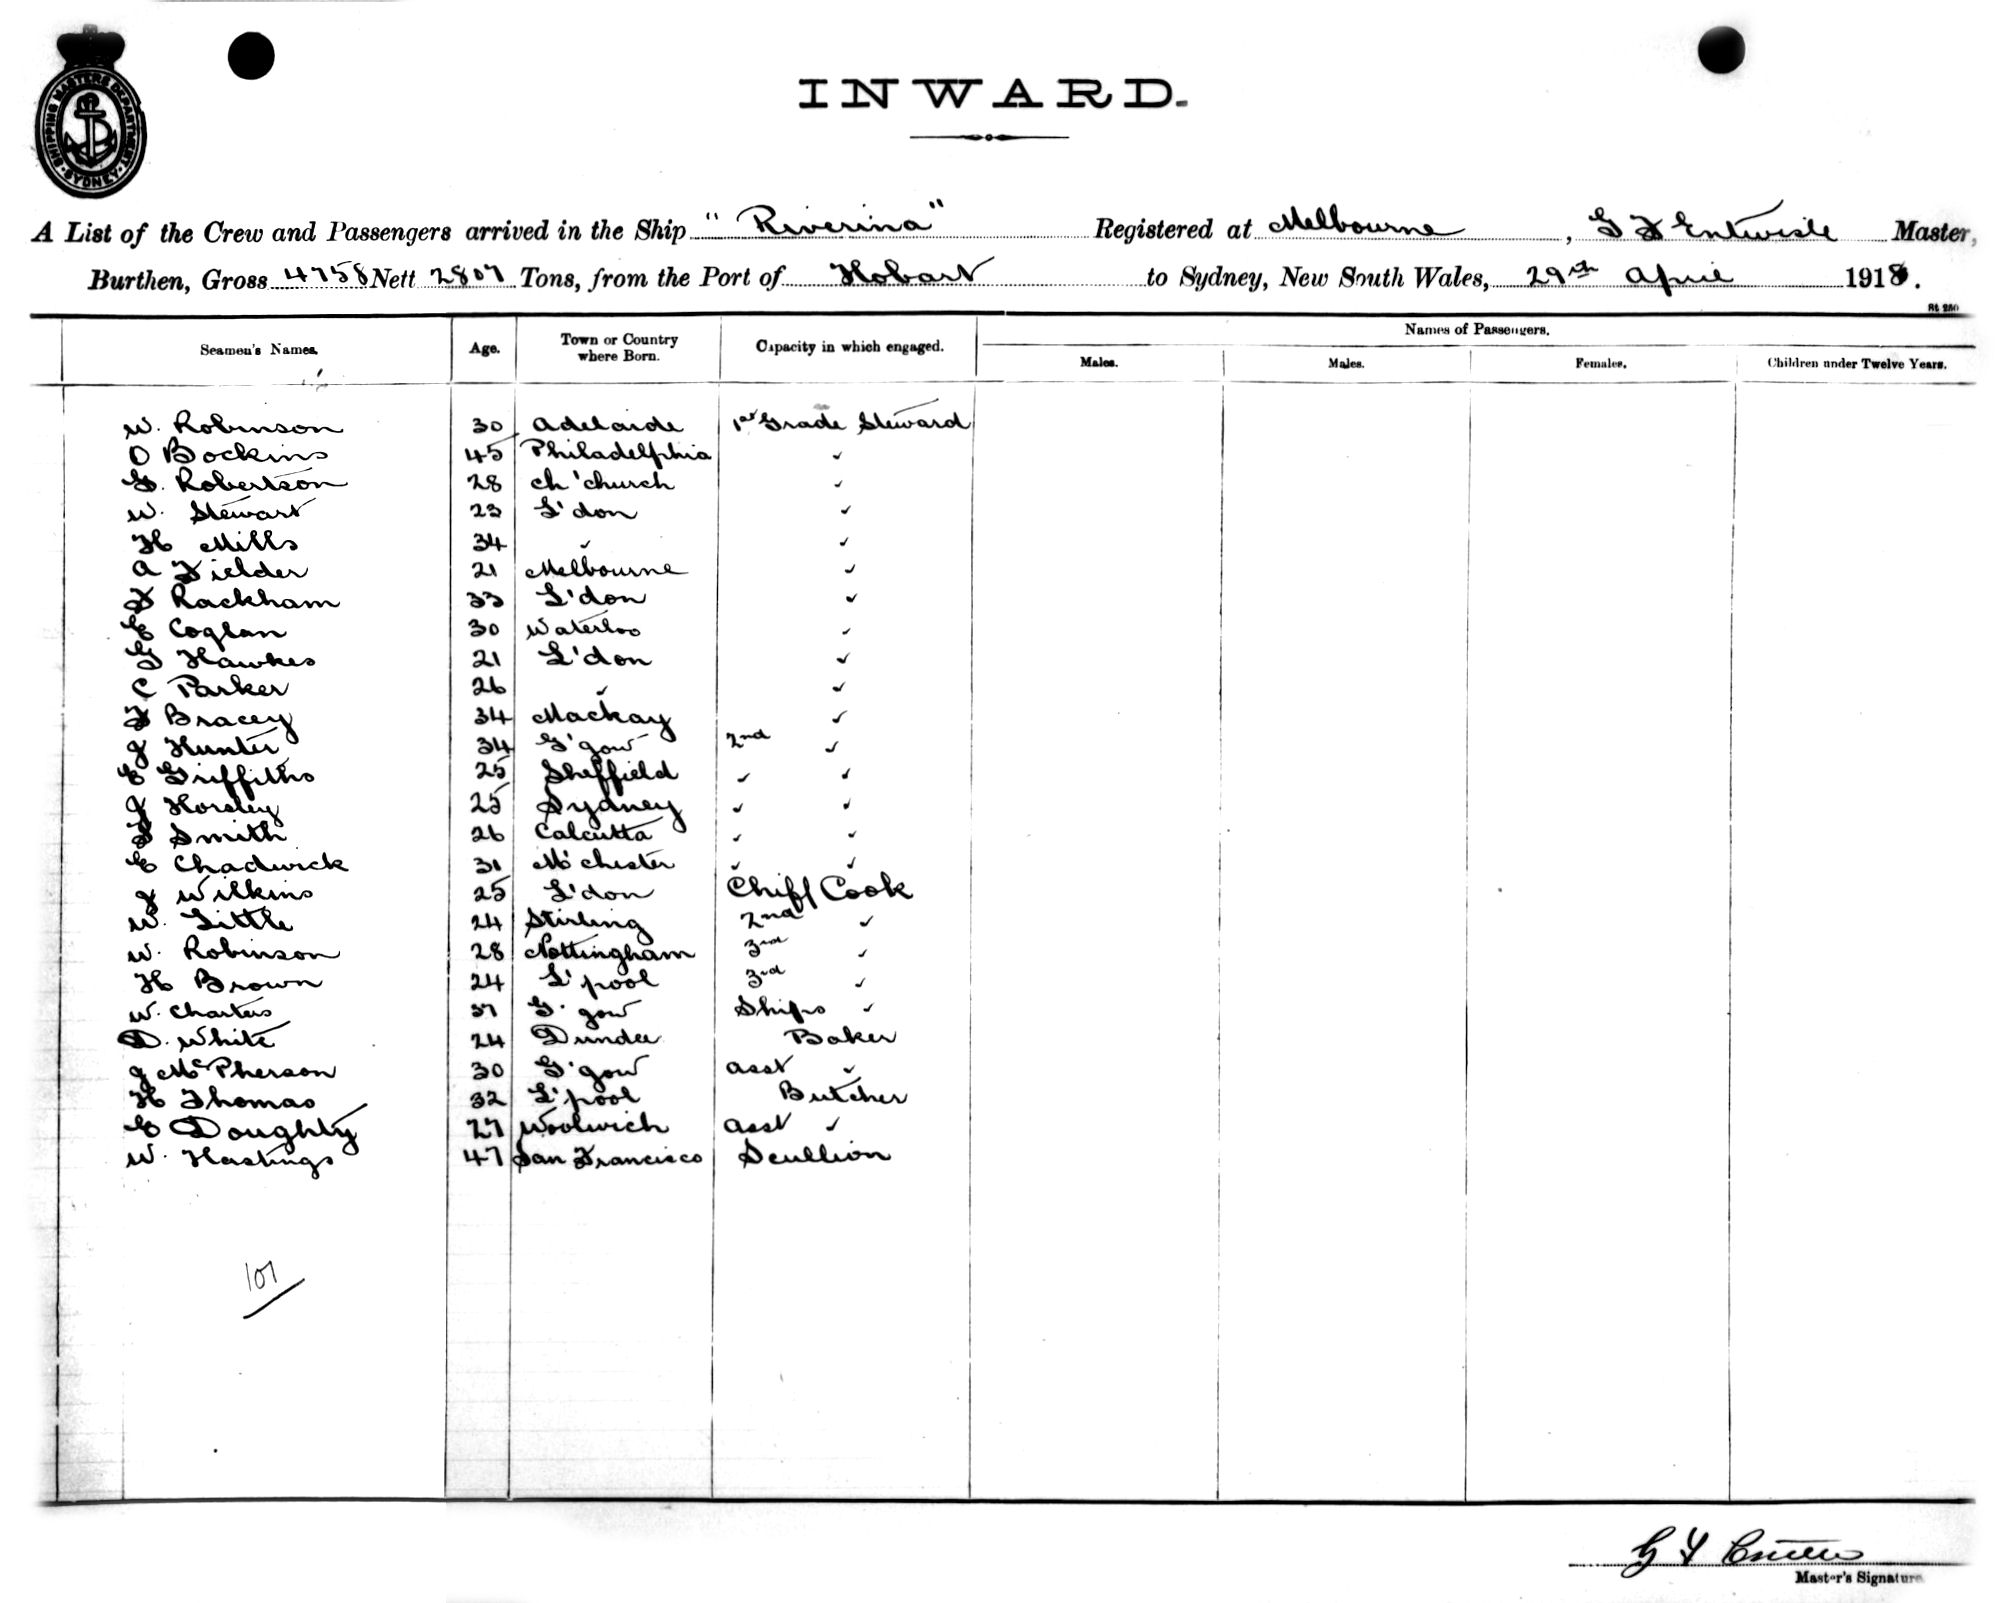 SHIPPING MASTERS DEPARTMENT
SYDNEY
INWARD.
A List of the Crew and Passengers arrived in the Ship "Riverina" Registered at Melbourne, G F Entwisle Master,
Burthen, Gross 4758 Nett 2807 Tons, from the Port of Hobart to Sydney, New South Wales, 29th April 1918.
St 250
Names of Passengers.
Seamen's Names. Age. Town or Country where Born. Capacity in which engaged. Males. Males. Females. Children under Twelve Years.
W. Robinson 30 Adelaide 1st Grade Steward
O Bockins 45 Philadelphia ✓
G. Robertson 28 Ch'church ✓
W. Stewart 23 L'don ✓
H Mills 34 ✓ ✓
A Fielder 21 Melbourne ✓
F Rackham 33 L'don ✓
E Coglan 30 Waterloo ✓
G Hawkes 21 L'don ✓
C Parker 26 ✓ ✓
F Bracey 34 Mackay ✓
J Hunter 34 G'gow 2nd ✓
E Griffiths 25 Sheffield ✓ ✓
J Horsley 25 Sydney ✓ ✓
S Smith 26 Calcutta ✓ ✓
E Chadwick 31 M'chester ✓ ✓
J Wilkins 25 L'don Chief Cook
W. Little 24 Stirling 2nd ✓
W. Robinson 28 Nottingham 3rd ✓
H Brown 24 L'pool 3rd ✓
W. Charters 37 G'gow Ships ✓
D. White 24 Dundee Baker
J McPherson 30 G'gow Asst ✓
H Thomas 32 L'pool Butcher
E Doughty 27 Woolwich Asst ✓
W. Hastings 47 San Francisco Scullion
107
G F
Master's Signature